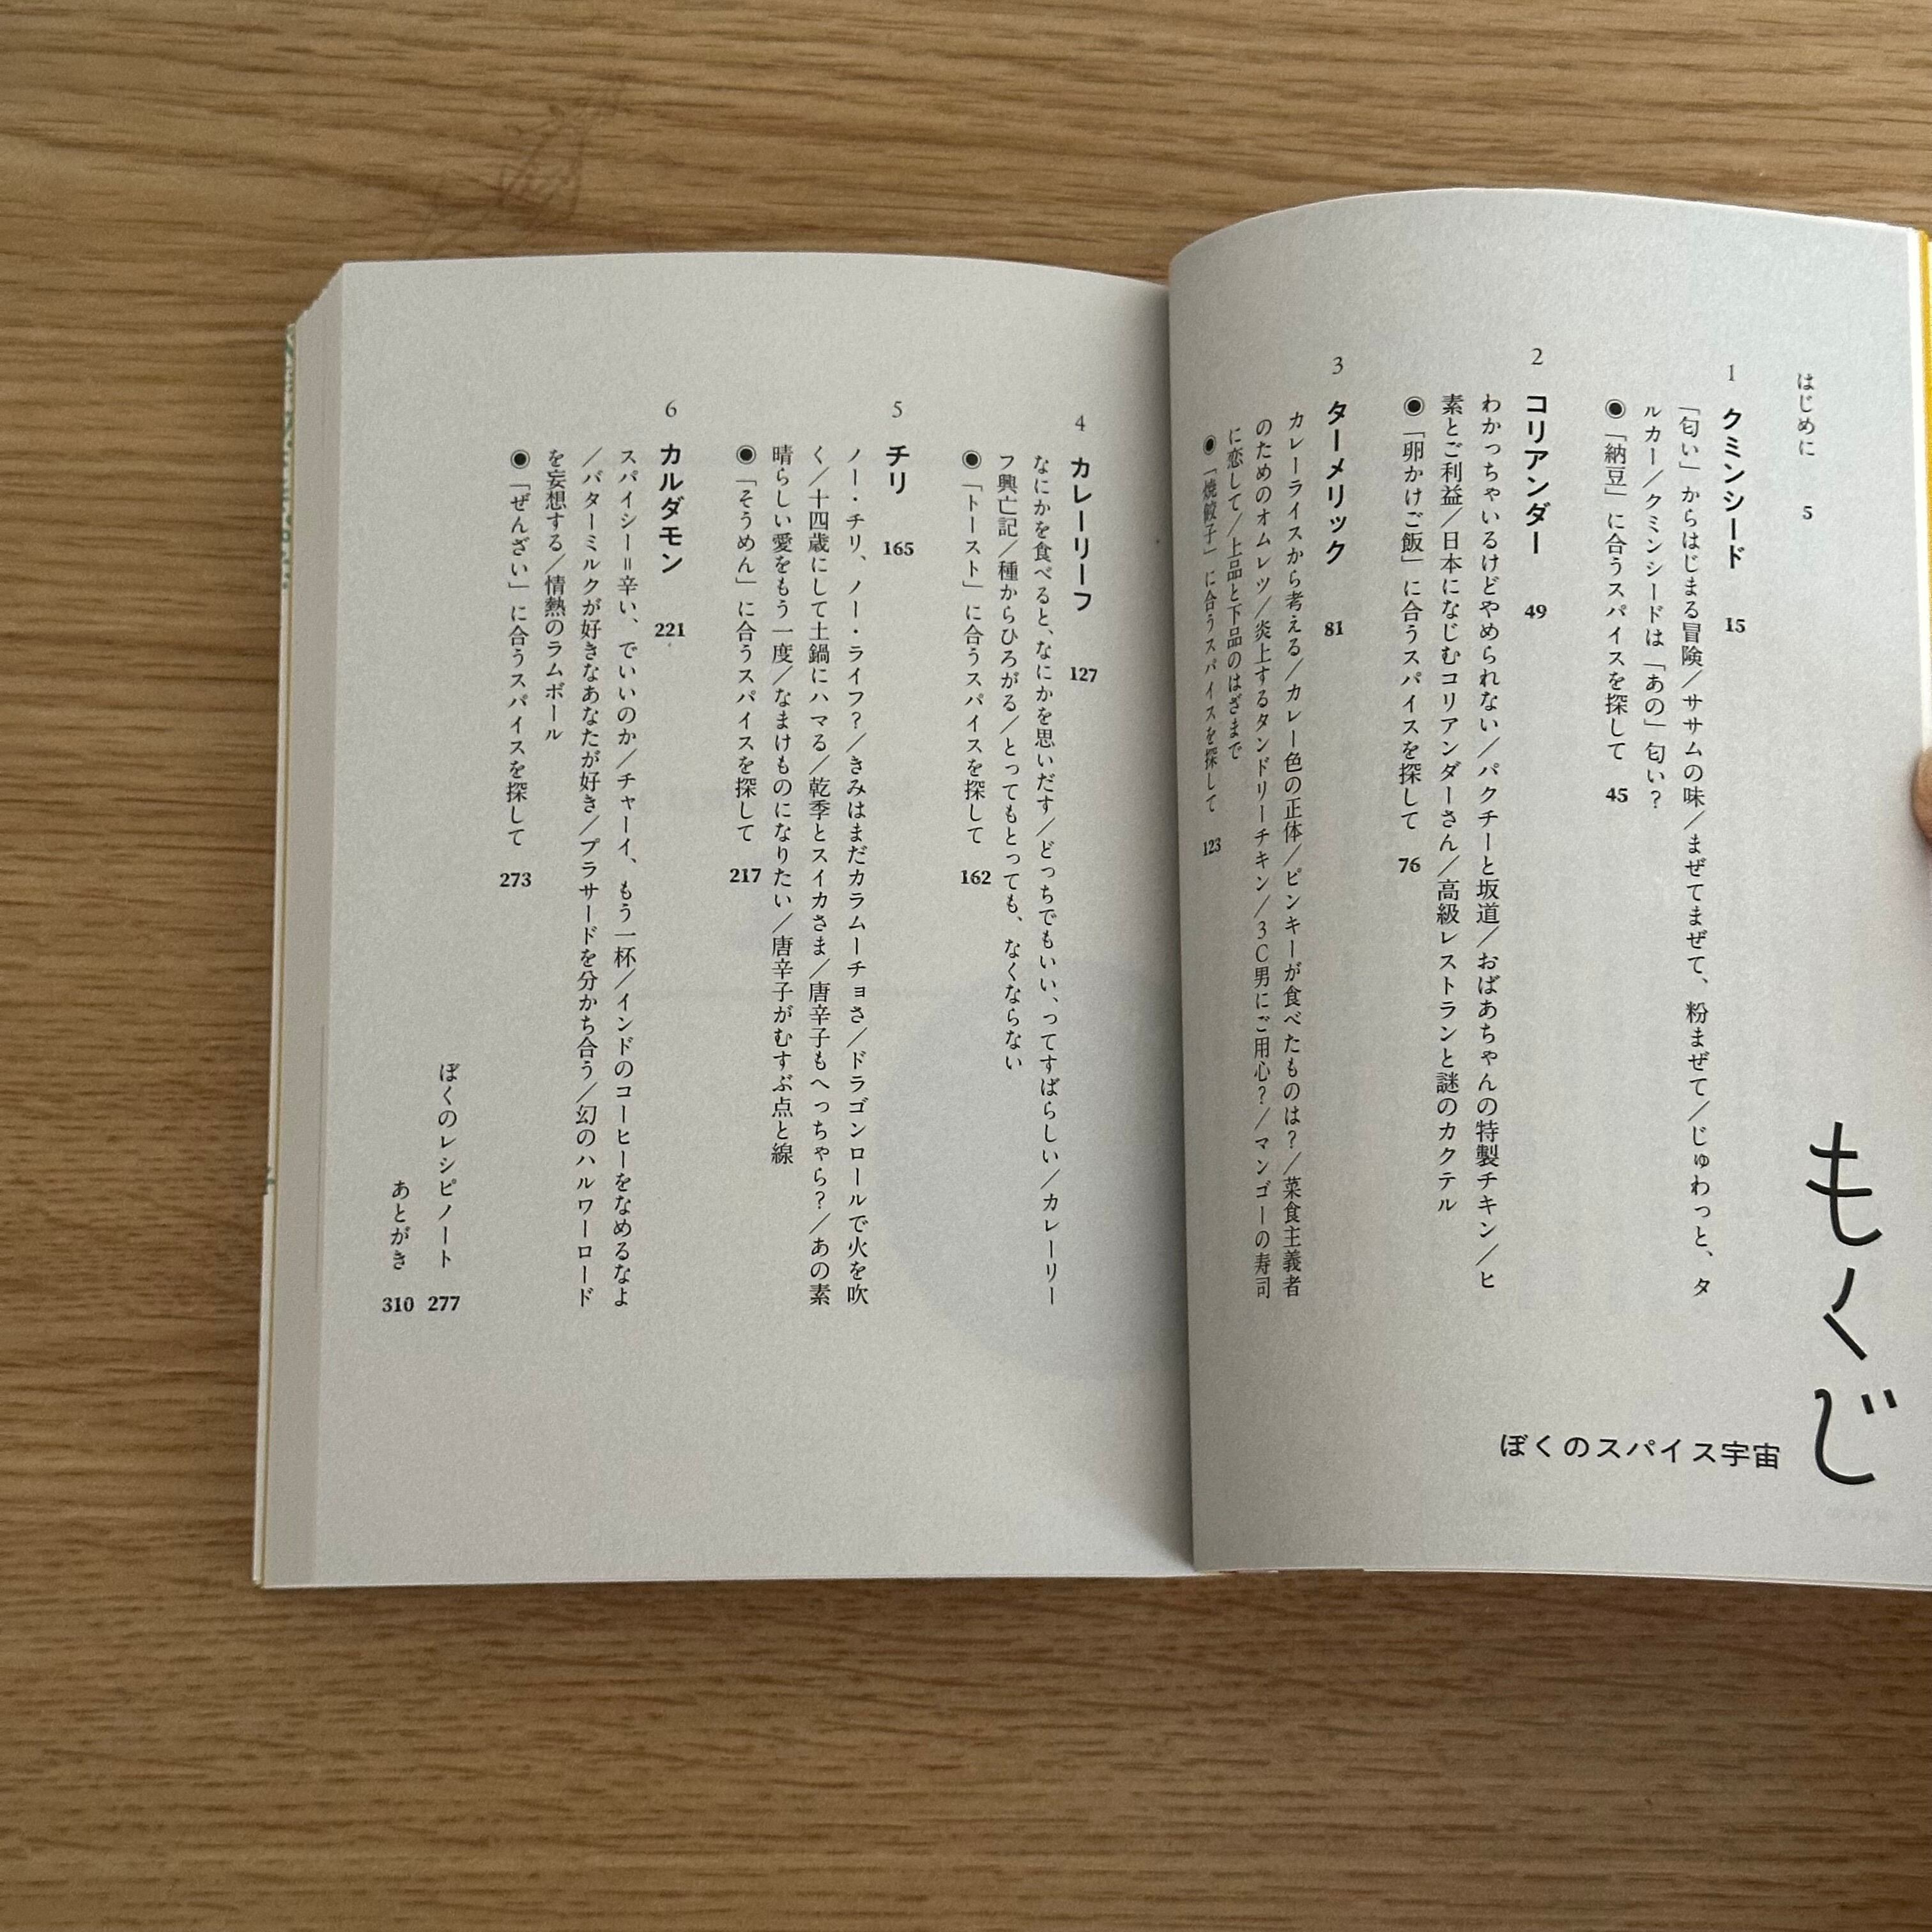 もくじ
ぼくのスパイス宇宙
はじめに 5
1 クミンシード 15
「匂い」からはじまる冒険／ササムの味／まぜてまぜて、粉まぜて／じゅわっと、タ
ルカー／クミンシードは「あの」匂い？
◉「納豆」に合うスパイスを探して 45
2 コリアンダー 49
わかっちゃいるけどやめられない／パクチーと坂道／おばあちゃんの特製チキン／ヒ
素とご利益／日本になじむコリアンダーさん／高級レストランと謎のカクテル
◉「卵かけご飯」に合うスパイスを探して 76
3 ターメリック 81
カレーライスから考える／カレー色の正体／ピンキーが食べたものは？／菜食主義者
のためのオムレツ／炎上するタンドリーチキン／3C男にご用心？／マンゴーの寿司
に恋して／上品と下品のはざまで
◉「焼餃子」に合うスパイスを探して 123
4 カレーリーフ 127
なにかを食べると、なにかを思いだす／どっちでもいい、ってすばらしい／カレーリー
フ興亡記／種からひろがる／とってもとっても、なくならない
◉「トースト」に合うスパイスを探して 162
5 チリ 165
ノー・チリ、ノー・ライフ？／きみはまだカラムーチョさ／ドラゴンロールで火を吹
く／十四歳にして土鍋にハマる／乾季とスイカさま／唐辛子もへっちゃら？／あの素
晴らしい愛をもう一度／なまけものになりたい／唐辛子がむすぶ点と線
◉「そうめん」に合うスパイスを探して 217
6 カルダモン 221
スパイシー＝辛い、でいいのか／チャーイ、もう一杯／インドのコーヒーをなめるなよ
／バターミルクが好きなあなたが好き／プラサードを分かち合う／幻のハルワーロード
を妄想する／情熱のラムボール
◉「ぜんざい」に合うスパイスを探して 273
ぼくのレシピノート 277
あとがき 310